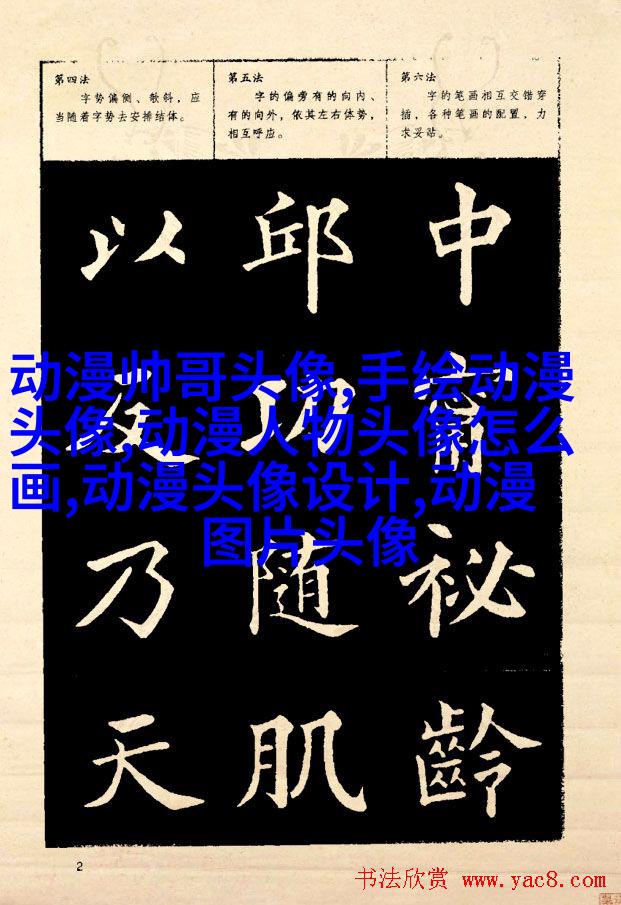 第四法
字势偏侧、欹斜，应
当随着字势去安排结体。
第五法
字的偏旁有的向内、
有的向外，依其左右体势，
相互呼应。
第六法
字的笔画相互交错穿
插，各种笔画的配置，力
求妥贴。
以 邱 中
动漫帅哥头像,手绘动漫
头像,动漫人物头像怎么
画,动漫头像设计,动漫
图片头像
乃 随 祕
天 肌 齡
2
书法欣赏 www.yac8.com